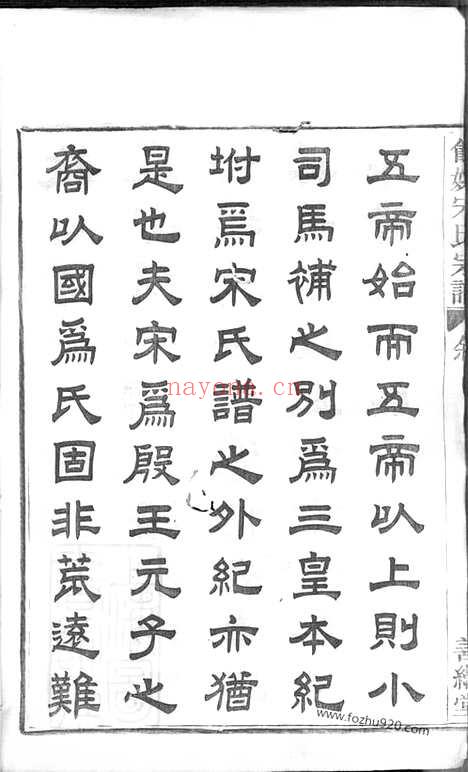 五帝始而五帝以上則小
司馬補之別爲三皇本紀
坿爲宋氏譜之外紀亦猶
是也夫宋爲殷王元子之
裔以國爲氏固非荒遠難
宋氏宗譜
善繼堂
nayona.cn
www.fozhu920.com